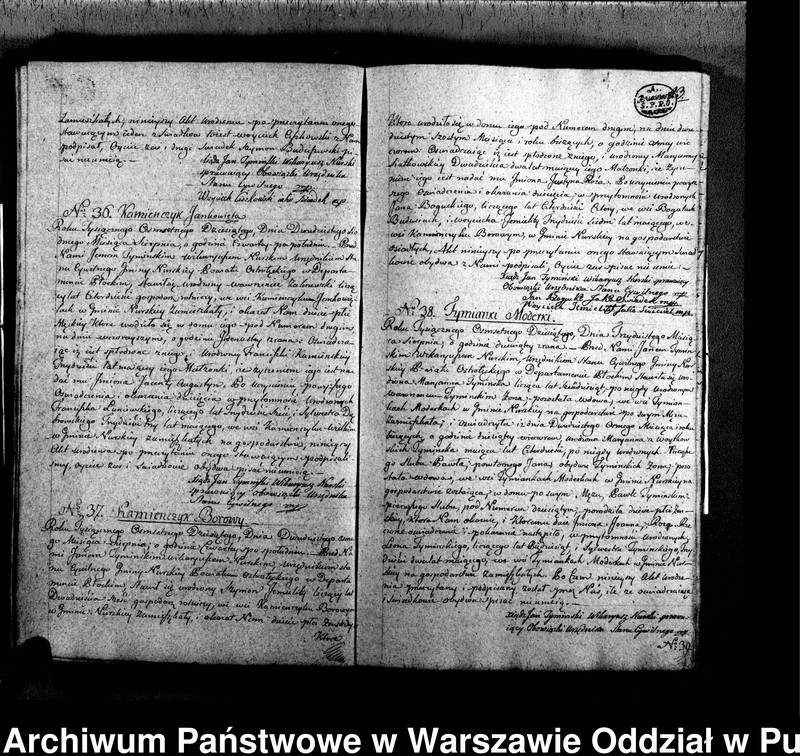 zamieszkałych, niniejszy Akt urodzenia po przeczytaniu onego
stawaiącym ieden z Świadków iest Woyciech z Nami
podpisał, Oyciec zaś i drugi Świadek Szymon pi-
sać nieumieią. —
Xiądz Jan Tyminski Wikaryusz Nurski
sprawuiący Obowiązki Urzędnika
Stanu Cywilnego mp
Woyciech iako Swiadek
No. 36. Kamienczyk Jankowięta
Roku Tysiącznego Ośmsetnego Dziesiątego, Dnia Dwudziestego
Miesiąca Sierpnia, o godzinie czwartey po południu. Przed
Nami Janem Tyminskim Wikaryuszem Nurskim Urzędnikiem Sta-
nu Cywilnego Gminy Nurskiey Powiatu Ostrołęckiego w Departa-
mencie Płockim, Stawił się urodzony Wawrzeniec liczą-
cy lat Czterdzieści gospodarz rolniczy, we wsi Kamienczyku
w Gminie Nurskiey zamieszkały, i okazał Nam dziecie płci
Męskiey które urodziło się w domu iego pod Numerem drugim
na dniu wczorayszym, o godzinie Jedenastey zrana; Oświadcza-
iąc iż iest spłodzone z niego, i urodzoney Franciszki Kaminskiey,
lat maiącey iego Małżonki, i że życzeniem iego iest na-
dać mu Jmiona Jacenty Augustyn. Po uczynieniu powyższego
Oświadczenia i okazaniu dziecięcia w przytomności Urodzonych
Franciszka liczącego lat Trzydzieści Sześć, i Sylwestra
lat maiącego, we wsi Kamienczyku Wielkim
w Gminie Nurskiey zamieszkałych na gospodarstwie, niniejszy
Akt urodzenia po przeczytaniu onego stawaiącym podpisali-
śmy, Oyciec zaś i Świadkowie obydwa pisać nieumieią. —
Xiądz Jan Tyminski Wikaryusz Nurski
sprawuiący obowiązki Urzędnika
Stanu Cywilnego mp
No. 37. Kamienczyk Borowy.
Roku Tysiącznego Ośmsetnego Dziesiątego, Dnia Dwudziestego
Miesiąca Sierpnia, o godzinie czwartey po południu. Przed Na-
mi Janem Tyminskim Wikaryuszem Nurskim, Urzędnikiem Sta-
nu Cywilnego Gminy Nurskiey Powiatu Ostrołęckiego w Departa-
mencie Płockim, Stawił się urodzony Szymon liczący lat
Dwadzieścia gospodarz rolniczy, we wsi Kamienczyku Borowym
w Gminie Nurskiey zamieszkały, i okazał Nam dziecie płci Żenskiey
które
które urodziło się w domu iego pod Numerem drugim, na dniu dwu-
dziestym Szóstym Miesiąca i roku bieżących, o godzinie wie-
czorem Oświadczaiąc iż iest spłodzone z niego, i urodzoney Maryanny
Dwadzieścia dwa lat maiącey iego Małżonki, i że życze-
niem iego iest nadać mu Jmiona Justyna Róża. Po uczynieniu powyż-
szego Oświadczenia i okazania dziecięcia w przytomności urodzonych
Jana liczącego lat Czterdzieści Cztery, we wsi
i Woyciecha Trzydzieści lat maiącego, we
wsi Kamienczyku Borowym w Gminie Nurskiey na gospodarstwie
osiadłych, Akt niniejszy po przeczytaniu onego Stawaiącym Świad-
kowie obydwa z Nami podpisali, Oyciec zaś pisać nieumie. —
Xiądz Jan Tyminski Wikaryusz Nurski sprawuiący
Obowiązki Urzędnika Stanu Cywilnego mp
Jan Jako Swiadek
Woyciech Jako Swiadek
No. 38. Tymianki Moderki.
Roku Tysiącznego Ośmsetnego Dziesiątego, Dnia Trzydziestego Miesią-
ca Sierpnia, o godzinie dziesiątey zrana. Przed Nami Janem Tymin-
skim Wikaryuszem Nurskim, Urzędnikiem Stanu Cywilnego Gminy Nur-
skiey Powiatu Ostrołęckiego w Departamencie Płockim, Stawiła się uro-
dzona Maryanna Tyminska licząca lat Sześćdziesiąt, po niegdy urodzonym
Tyminskim żona pozostała wdowa, we wsi Tymian-
kach Moderkach w Gminie Nurskiey na gospodarstwie po swym Mężu
zamieszkała; i oświadczyła iż dnia Dwudziestego Ósmego Miesiąca i roku
bieżących, o godzinie dziesiątey wieczorem, urodzona Maryanna z
Tyminska maiąca lat Czterdzieści, po niegdy urodzonych
Pawła, powtórnego Jana, obydwa Tyminskich żona, pozo-
stała wdowa, we wsi Tymiankach Moderkach w Gminie Nurskiey na
gospodarstwie zostaiąca, w domu po swym Mężu, Pawle Tyminskim
pierwszego ślubu, pod Numerem dziesiątym, porodziła dziecie płci Żen-
skiey, które Nam okazuie, i któremu daie Jmiona Joanna, Róża. Po
oświadczenie i pokazanie nastąpiło, w przytomności Urodzonych
Tyminskiego, liczącego lat Pięćdziesiąt, i Sylwestra Tyminskiego, Trzy-
dzieści dwa lat maiącego, we wsi Tymiankach Moderkach w Gminie Nur-
skiey na gospodarstwie zamieszkałych. Po czem niniejszy Akt urodze-
nia przeczytany i podpisany został przez Nas, ile że oświadczaiąca i
Świadkowie obydwa pisać nieumieią. —
Xiądz Jan Tyminski Wikaryusz Nurski sprawu-
iący Obowiązki Urzędnika Stanu Cywilnego mp
No. 39
Archiwum Państwowe w Warszawie Oddział w Pu